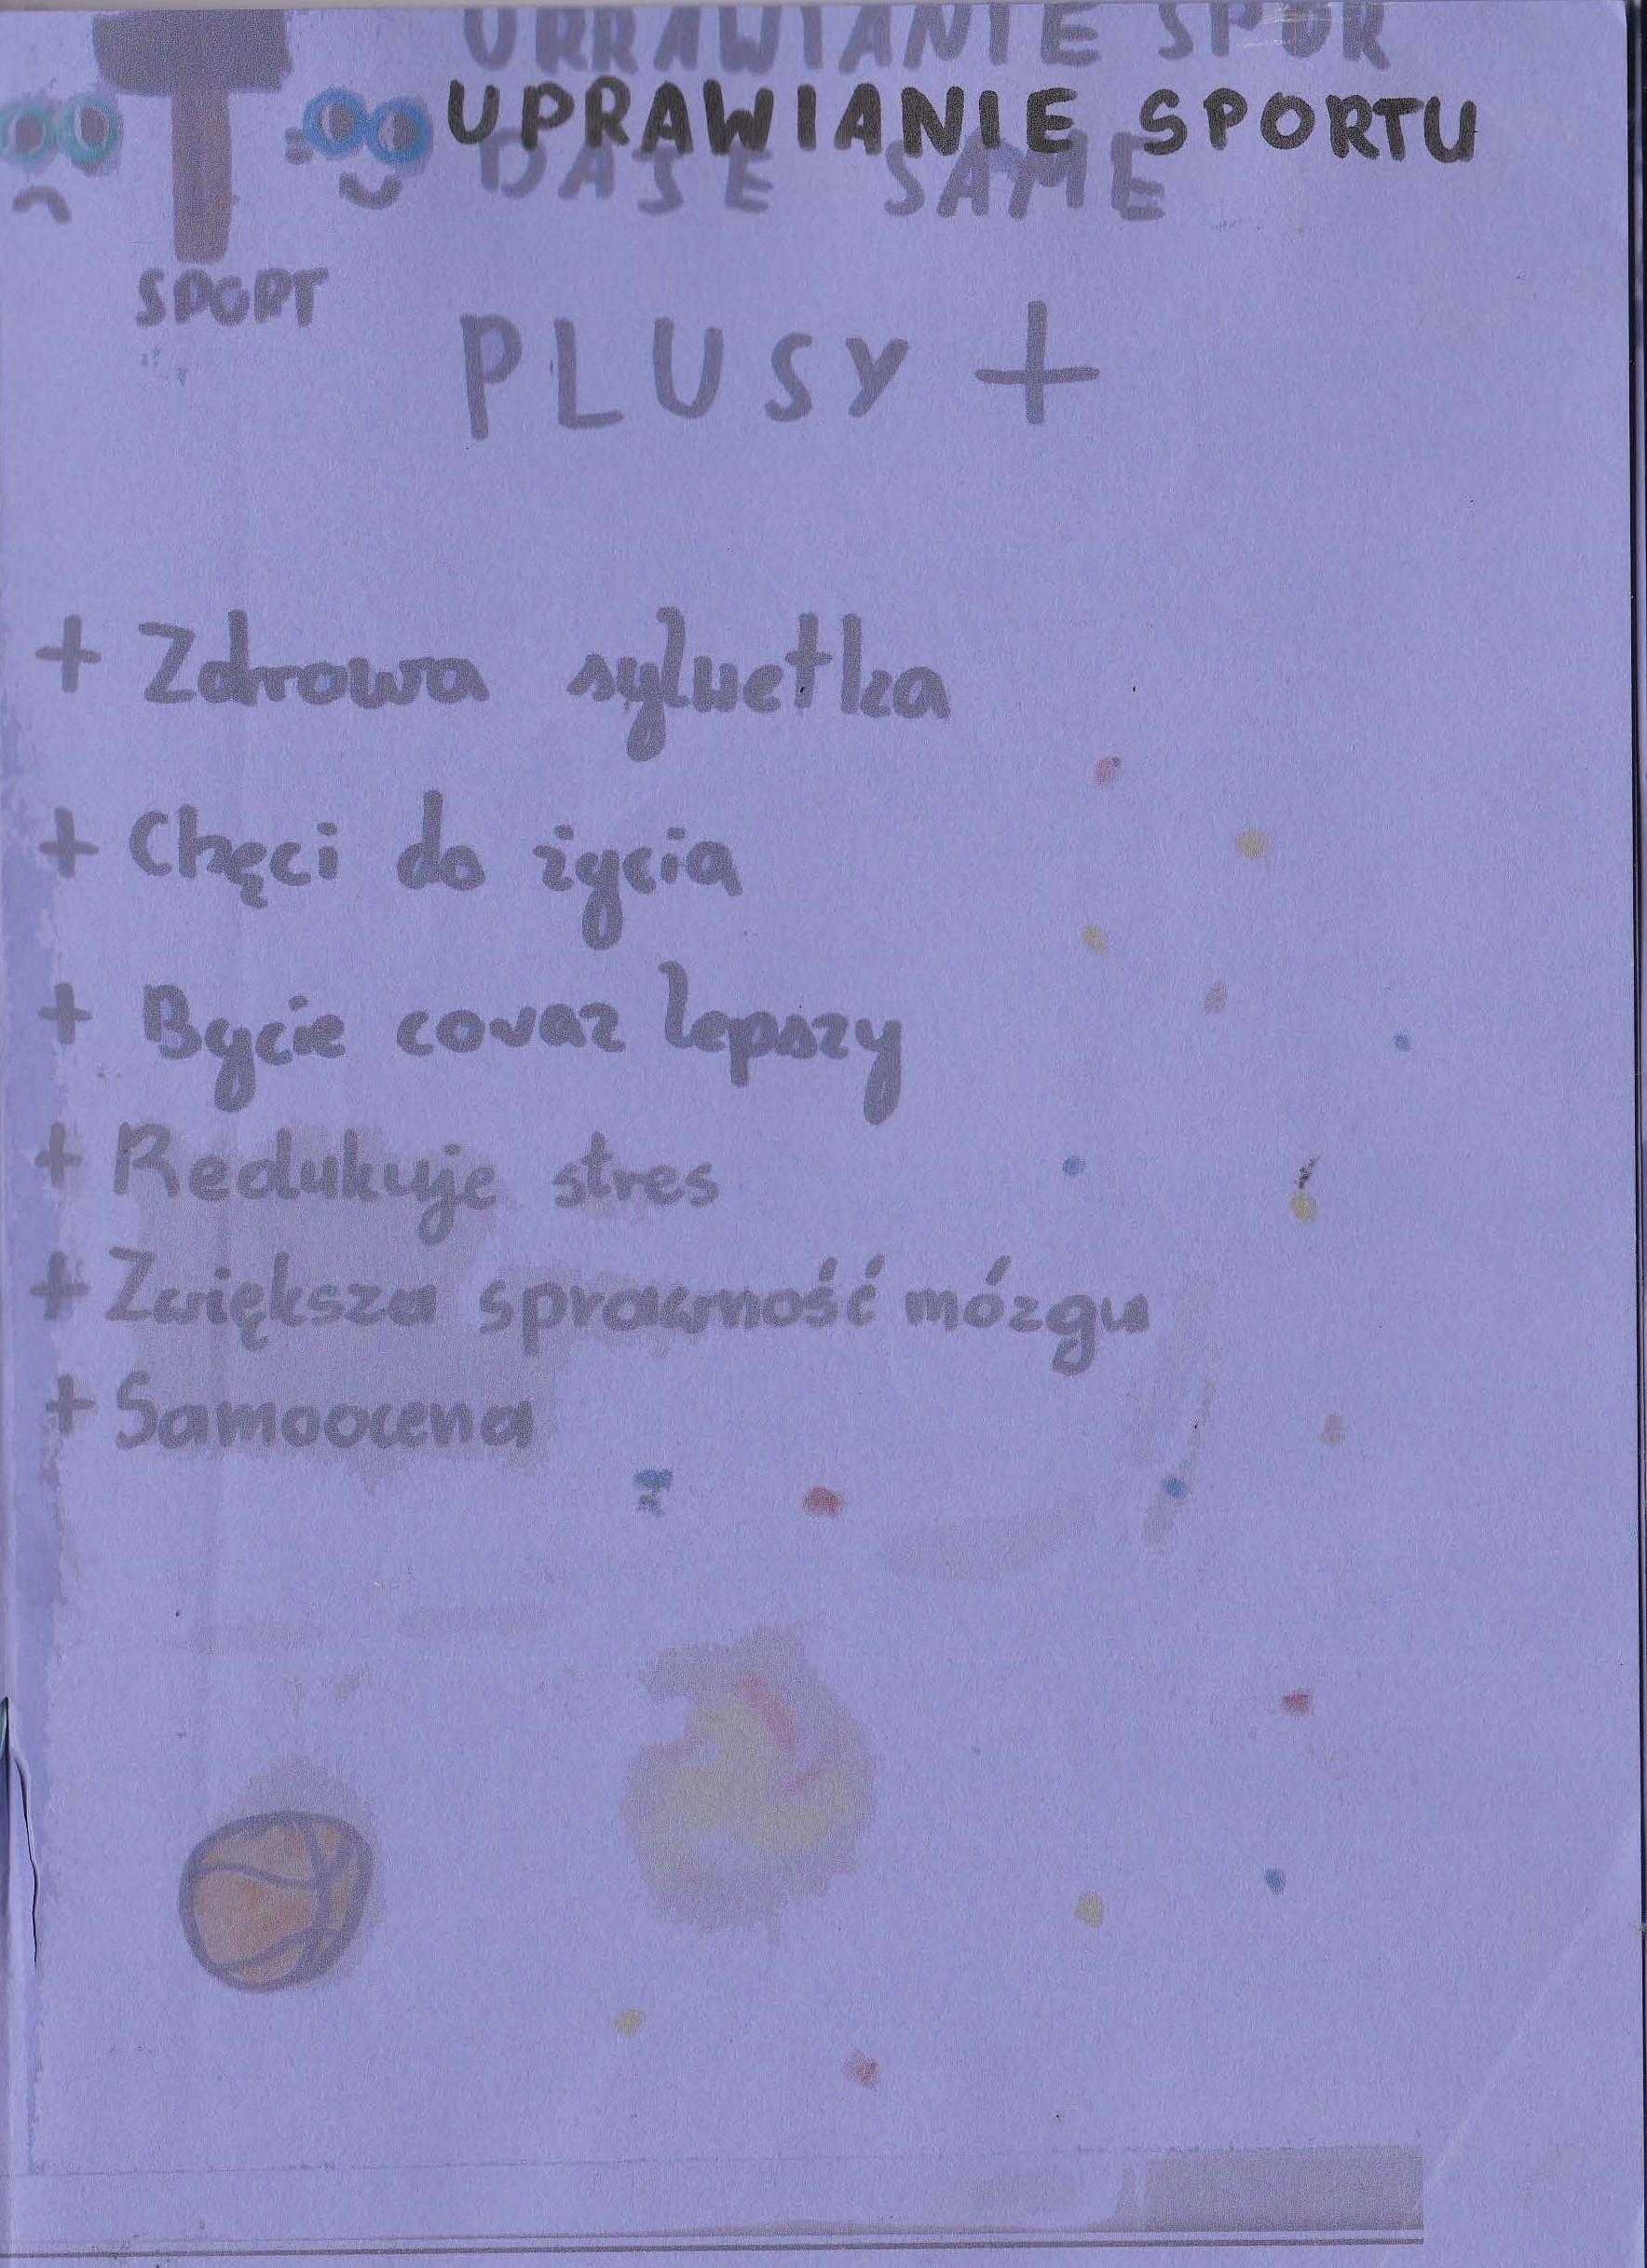 URRAWIANIE SPOR
UPRAWIANIE SPORTU
DAJE SAME
SPORT
PLUSY +
+ Zdrowa sylwetka
+ Chęci do życia
+ Bycie coraz lepszy
+ Redukuje stres
+ Zwiększa sprawność mózgu
+ Samoocena